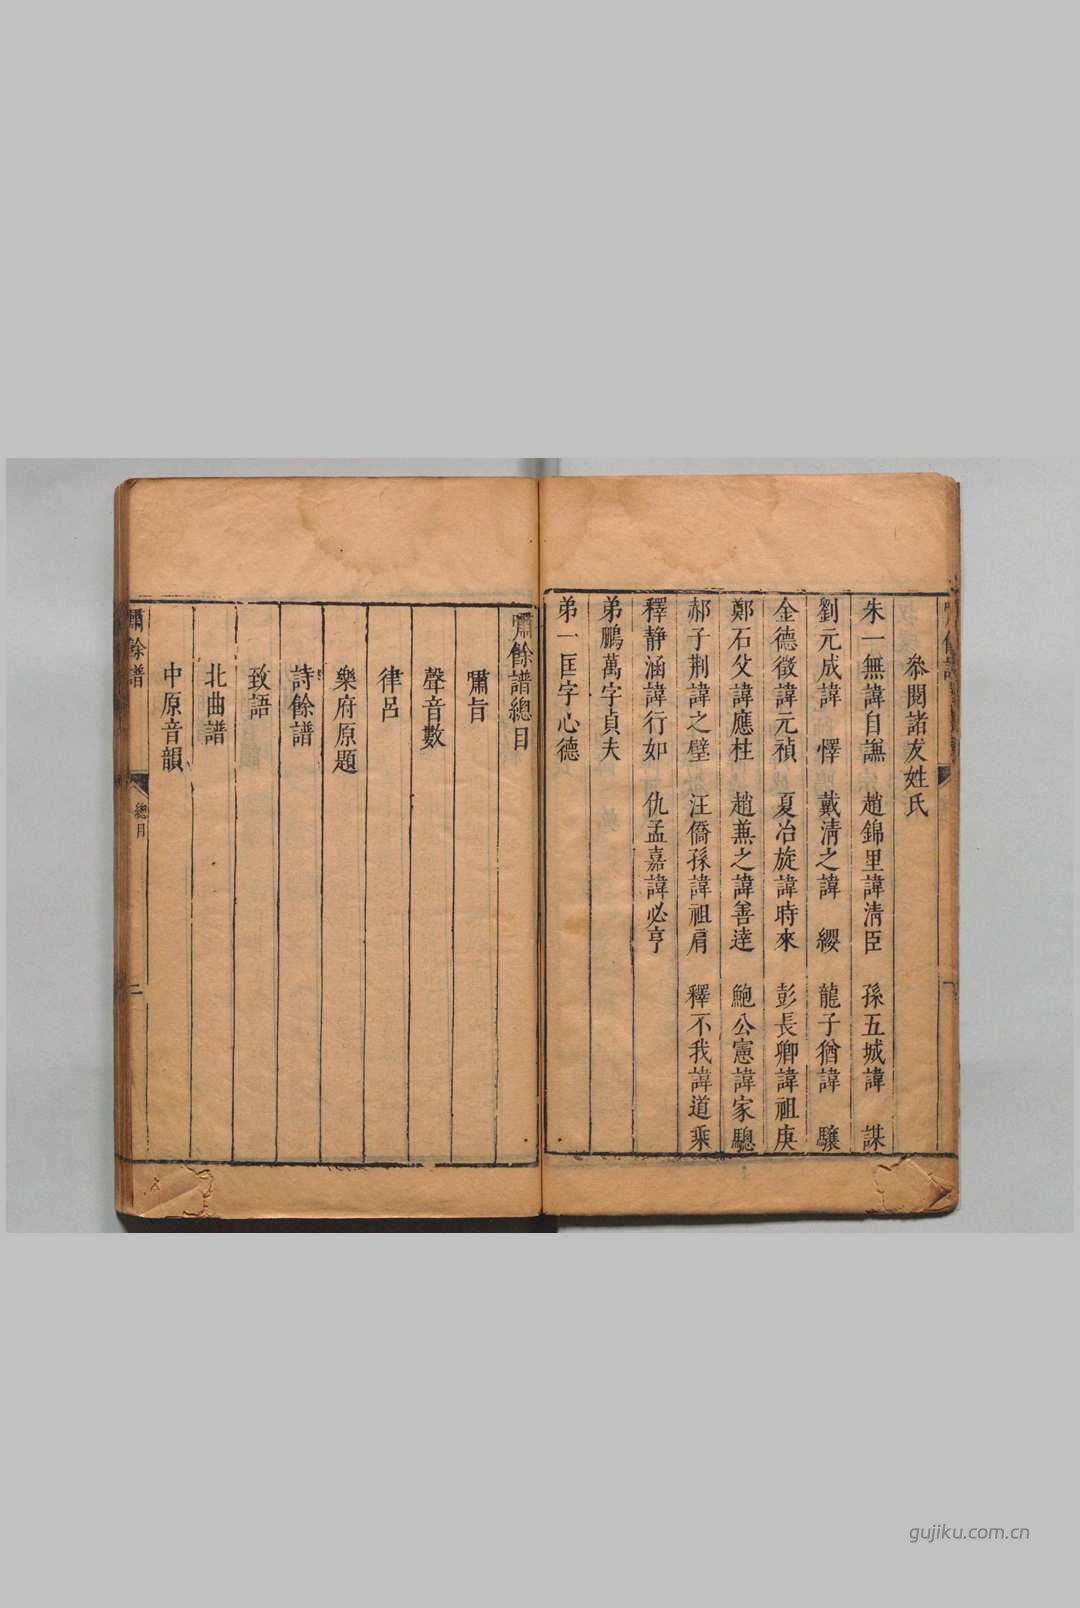 參閱諸友姓氏
朱一無諱自謙 趙錦里諱清臣 孫五城諱 謀
劉元成諱 懌 戴淸之諱 纓 龍子猶諱 驤
金德徵諱元禎 夏冶旋諱時來 彭長卿諱祖庚
鄭石父諱應柱 趙蕪之諱善達 鮑公憲諱家驄
郝子荆諱之璧 汪僑孫諱祖肩 釋不我諱道乘
釋静涵諱行如 仇孟嘉諱必亨
弟鵬萬字貞夫
弟一匡字心德
嘯餘譜總目
嘯旨
聲音數
律呂
樂府原題
詩餘譜
致語
北曲譜
中原音韻
嘯餘譜 總目 二
gujiku.com.cn